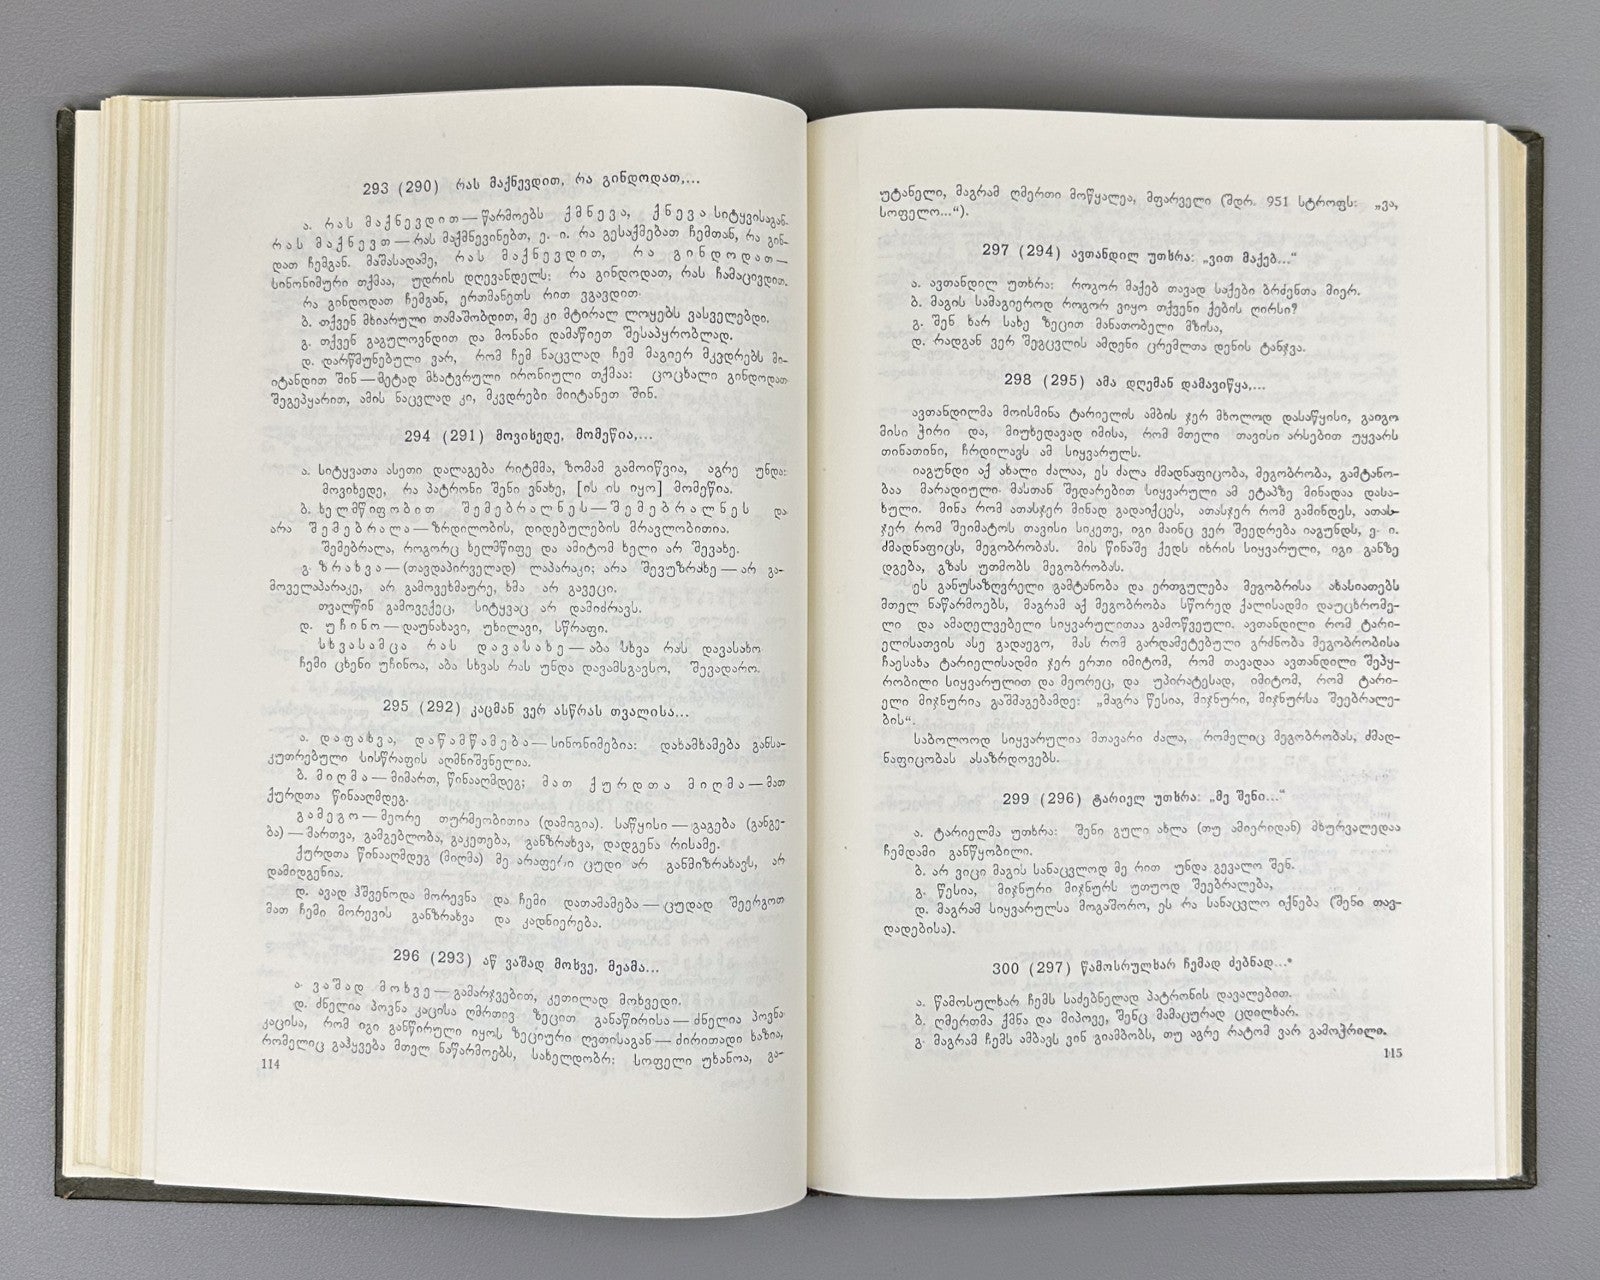 293 (290) რას მაქნევდით, რა გინდოდათ,...
ა. რას მაქნევდით — წარმოებს ქმნევა, ქნევა სიტყვისაგან.
რას მაქნევთ — რას მაქმნევინებთ, ე. ი. რა გესაქმებათ ჩემთან, რა გინ-
დათ ჩემგან. მაშასადამე, რას მაქნევდით, რა გინდოდათ —
სინონიმური თქმაა, უდრის დღევანდელს: რა გინდოდათ, რას ჩამაცივდით.
რა გინდოდათ ჩემგან, ერთმანეთს რით ვგავდით.
ბ. თქვენ მხიარული თამაშობდით, მე კი მტირალ ლოყებს ვასველებდი.
გ. თქვენ გაგულოვნდით და მონანი დამაწიეთ შესაპყრობლად.
დ. დარწმუნებული ვარ, რომ ჩემ ნაცვლად ჩემ მაგიერ მკვდრებს მი-
იტანდით შინ — მეტად მხატვრული ირონიული თქმაა: ცოცხალი გინდოდათ
შეგეპყარით, ამის ნაცვლად კი, მკვდრები მიიტანეთ შინ.
294 (291) მოვიხედე, მომეწია,...
ა. სიტყვათა ასეთი დალაგება რიტმმა, ზომამ გამოიწვია, აგრე უნდა:
მოვიხედე, რა პატრონი შენი ვნახე, [ის ის იყო] მომეწია.
ბ. ხელმწიფობით შემებრალნეს — შემებრალნეს და
არა შემებრალა — ზრდილობის, დიდებულების მრავლობითია.
შემებრალა, როგორც ხელმწიფე და ამიტომ ხელი არ შევახე.
გ. ზრახვა — (თავდაპირველად) ლაპარაკი; არა შევუზრახე — არ გა-
მოველაპარაკე, არ გამოვეხმაურე, ხმა არ გავეცი.
თვალწინ გამოვექეც, სიტყვაც არ დამიძრავს.
დ. უჩინო — დაუნახავი, უხილავი, სწრაფი.
სხვასამცა რას დავასახე — აბა სხვა რას დავასახო
ჩემი ცხენი უჩინოა, აბა სხვას რას უნდა დავამსგავსო, შევადარო.
295 (292) კაცმან ვერ ასწრას თვალისა...
ა. დაფახვა, დაწამწამება — სინონიმებია: დახამხამება განსა-
კუთრებული სისწრაფის აღმნიშვნელია.
ბ. მიღმა — მიმართ, წინააღმდეგ; მათ ქურდთა მიღმა — მათ
ქურდთა წინააღმდეგ.
გამეგო — მეორე თურმეობითია (დამიგია). საწყისი — გაგება (განგე-
ბა) — მართვა, გამგებლობა, გაკეთება, განზრახვა, დადგენა რისამე.
ქურდთა წინააღმდეგ (მიღმა) მე არაფერი ცუდი არ განმიზრახავს, არ
დამიდგენია.
დ. ავად ჰშვენოდა მორევნა და ჩემი დათამამება — ცუდად შეერგოთ
მათ ჩემი მორევის განზრახვა და კადნიერება.
296 (293) აწ ვაშად მოხვე, მეამა...
ა. ვაშად მოხვე — გამარჯვებით, კეთილად მოხვედი.
დ. ძნელია პოვნა კაცისა ღმრთივ ზეცით განაწირისა — ძნელია პოვნა
კაცისა, რომ იგი განწირული იყოს ზეციური ღვთისაგან — ძირითადი ხაზია,
რომელიც გაჰყვება მთელ ნაწარმოებს, სახელდობრ: სოფელი უხანოა, გა-
114
უტანელი, მაგრამ ღმერთი მოწყალეა, მფარველი (შდრ. 951 სტროფს: „ვა,
სოფელო...“).
297 (294) ავთანდილ უთხრა: „ვით მაქებ...“
ა. ავთანდილ უთხრა: როგორ მაქებ თავად საქები ბრძენთა მიერ.
ბ. მაგის სამაგიეროდ როგორ ვიყო თქვენი ქების ღირსი?
გ. შენ ხარ სახე ზეცით მანათობელი მზისა,
დ. რადგან ვერ შეგცვლის ამდენი ცრემლთა დენის ტანჯვა.
298 (295) ამა დღემან დამავიწყა,...
ავთანდილმა მოისმინა ტარიელის ამბის ჯერ მხოლოდ დასაწყისი, გაიგო
მისი ჭირი და, მიუხედავად იმისა, რომ მთელი თავისი არსებით უყვარს
თინათინი, ჩრდილავს ამ სიყვარულს.
იაგუნდი აქ ახალი ძალაა, ეს ძალა ძმადნაფიცობა, მეგობრობა, გამტანო-
ბაა მარადიული. მასთან შედარებით სიყვარული ამ ეტაპზე მინადაა დასა-
ხული. მინა რომ ათასჯერ მინად გადაიქცეს, ათასჯერ რომ გამინდეს, ათას-
ჯერ რომ შეიმატოს თავისი სიკეთე, იგი მაინც ვერ შეედრება იაგუნდს, ე. ი.
ძმადნაფიცს, მეგობრობას. მის წინაშე ქედს იხრის სიყვარული, იგი განზე
დგება, გზას უთმობს მეგობრობას.
ეს განუსაზღვრელი გამტანობა და ერთგულება მეგობრისა ახასიათებს
მთელ ნაწარმოებს, მაგრამ აქ მეგობრობა სწორედ ქალისადმი დაუცხრომე-
ლი და ამაღელვებელი სიყვარულითაა გამოწვეული. ავთანდილი რომ ტარი-
ელისათვის ასე გადაეგო, მას რომ გარდამეტებული გრძნობა მეგობრობისა
ჩაესახა ტარიელისადმი ჯერ ერთი იმიტომ, რომ თავადაა ავთანდილი შეპყ-
რობილი სიყვარულით და მეორეც, და უპირატესად, იმიტომ, რომ ტარი-
ელი მიჯნურია გაშმაგებამდე: „მაგრა წესია, მიჯნური, მიჯნურსა შეებრალე-
ბის“.
საბოლოოდ სიყვარულია მთავარი ძალა, რომელიც მეგობრობას, ძმად-
ნაფიცობას ასაზრდოვებს.
299 (296) ტარიელ უთხრა: „მე შენი...“
ა. ტარიელმა უთხრა: შენი გული ახლა (თუ ამიერიდან) მხურვალედაა
ჩემდამი განწყობილი.
ბ. არ ვიცი მაგის სანაცვლოდ მე რით უნდა გევალო შენ.
გ. წესია, მიჯნური მიჯნურს უთუოდ შეებრალება,
დ. მაგრამ სიყვარულსა მოგაშორო, ეს რა სანაცვლო იქნება (შენი თავ-
დადებისა).
300 (297) წამოსრულხარ ჩემად ძებნად...“
ა. წამოსულხარ ჩემს საძებნელად პატრონის დავალებით.
ბ. ღმერთმა ქმნა და მიპოვე, შენც მამაცურად ცდილხარ.
გ. მაგრამ ჩემს ამბავს ვინ გიამბობს, თუ აგრე რატომ ვარ გამოჭრილი.
115